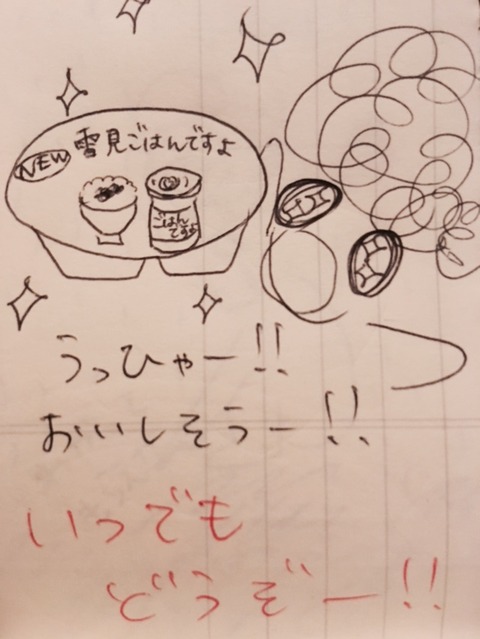 NEW 雪見ごはんですよ
ごはん
ですよ
うっひゃー!!
おいしそうー!!
いつでも
どうぞー!!